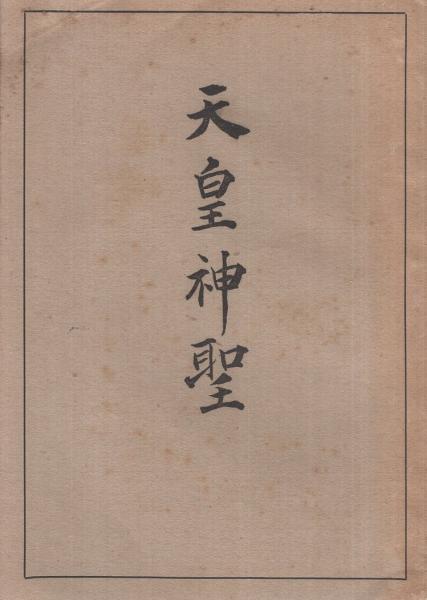 天皇神聖